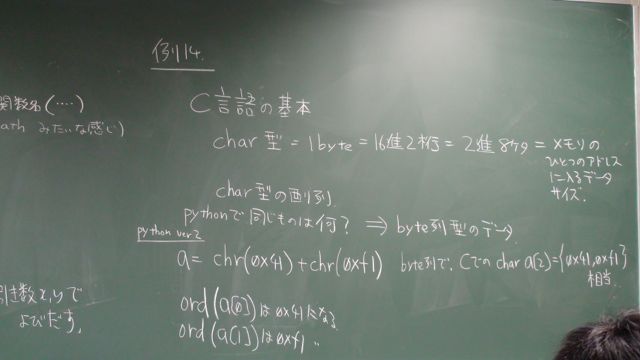 例14.
関数名(····)
ath みたいな感じ)
C言語の基本
char型 = 1byte = 16進2桁 = 2進8ケタ = メモリの
ひとつのアドレス
に入るデータ
サイズ.
char型の配列.
pythonで同じものは何? ⇒ byte列型のデータ.
python ver2
a = chr(0x41)+chr(0xf1) byte列で、Cでの char a[2]={0x41,0xf1}
相当.
引数x,yで
よびだす,
ord(a[0])は0x41になる
ord(a[1])は0xf1 〃